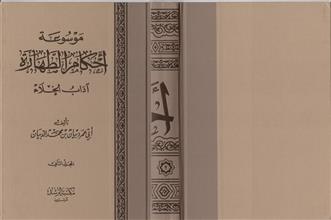 موسوعة
أحكام الطهارة
آداب الخلاء
تأليف
أبي عمر دبيان بن محمد الدبيان
المجلد الثاني
مكتبة الرشد